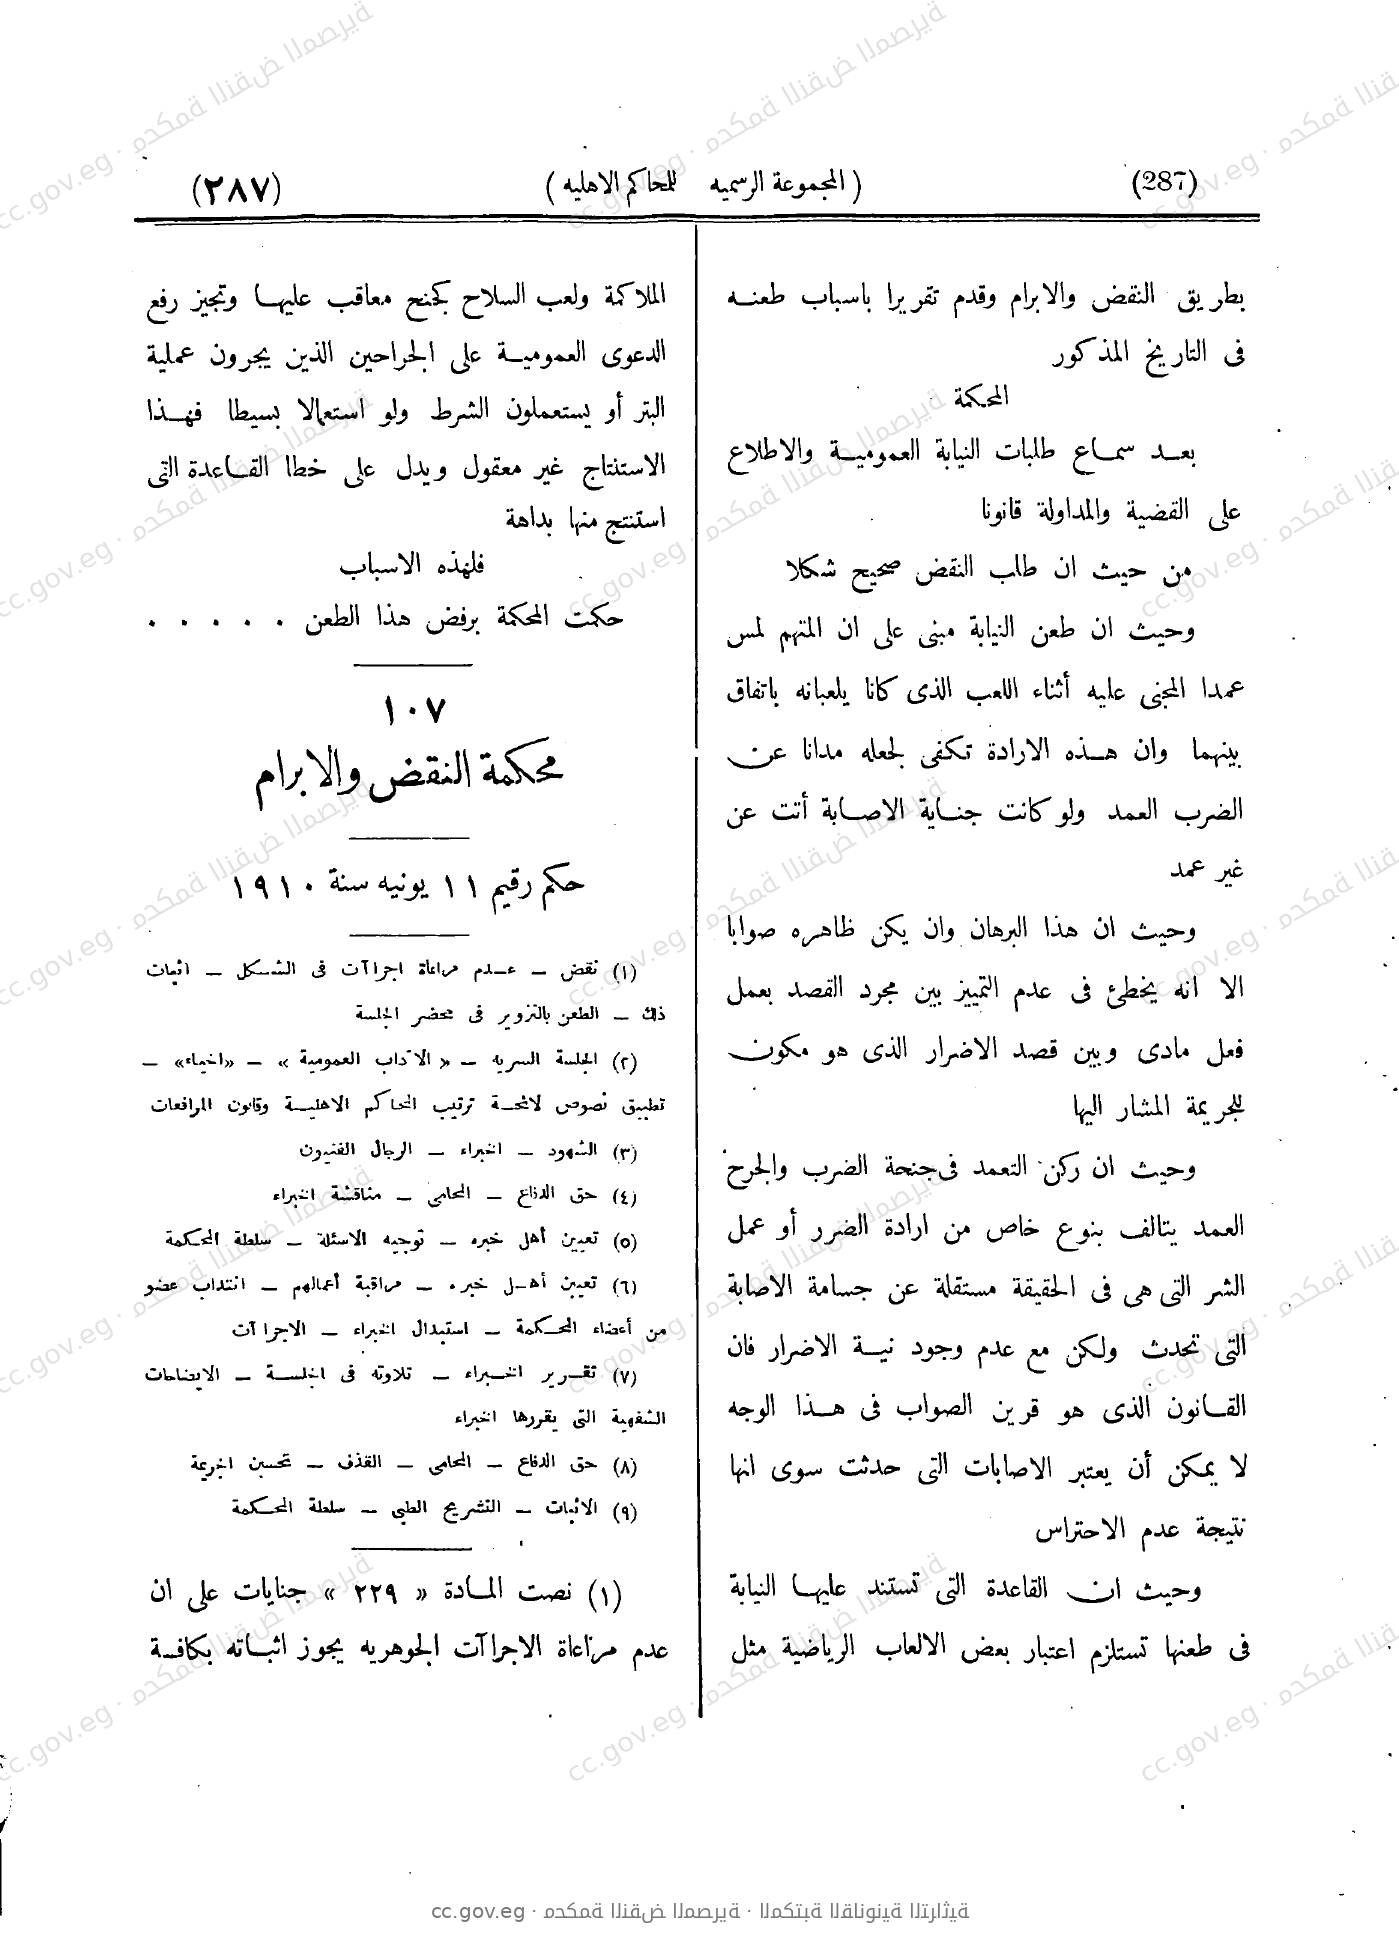 (287) (المجموعة الرسميه للمحاكم الاهليه) (٢٨٧)
بطريق النقض والابرام وقدم تقريرا باسباب طعنه
فى التاريخ المذكور
المحكمة
بعد سماع طلبات النيابة العمومية والاطلاع
على القضية والمداولة قانونا
من حيث ان طلب النقض صحيح شكلا
وحيث ان طعن النيابة مبنى على ان المتهم لمس
عمدا المجنى عليه أثناء اللعب الذى كانا يلعبانه باتفاق
بينهما وان هذه الارادة تكفى لجعله مدانا عن
الضرب العمد ولو كانت جناية الاصابة أتت عن
غير عمد
وحيث ان هذا البرهان وان يكن ظاهره صوابا
الا انه يخطئ فى عدم التمييز بين مجرد القصد بعمل
فعل مادى وبين قصد الاضرار الذى هو مكون
للجريمة المشار اليها
وحيث ان ركن التعمد فى جنحة الضرب والجرح
العمد يتالف بنوع خاص من ارادة الضرر أو عمل
الشر التى هى فى الحقيقة مستقلة عن جسامة الاصابة
التى تحدث ولكن مع عدم وجود نية الاضرار فان
القانون الذى هو قرين الصواب فى هذا الوجه
لا يمكن أن يعتبر الاصابات التى حدثت سوى انها
نتيجة عدم الاحتراس
وحيث ان القاعدة التى تستند عليها النيابة
فى طعنها تستلزم اعتبار بعض الالعاب الرياضية مثل
الملاكمة ولعب السلاح كجنح معاقب عليها وتجيز رفع
الدعوى العمومية على الجراحين الذين يجرون عملية
البتر أو يستعملون الشرط ولو استعمالا بسيطا فهذا
الاستنتاج غير معقول ويدل على خطا القاعدة التى
استنتج منها بداهة
فلهذه الاسباب
حكمت المحكمة برفض هذا الطعن . . . . .
١٠٧
محكمة النقض والابرام
حكم رقيم ١١ يونيه سنة ١٩١٠
(١) نقض – عدم مراعاة اجراآت فى الشكل – اثبات
ذلك – الطعن بالتزوير فى محضر الجلسة
(٢) الجلسة السريه – «الآداب العمومية» – «احياء» –
تطبيق نصوص لائحة ترتيب المحاكم الاهلية وقانون المرافعات
(٣) الشهود – الخبراء – الرجال الفنيون
(٤) حق الدفاع – المحامى – مناقشة الخبراء
(٥) تعيين أهل خبره – توجيه الاسئلة – سلطة المحكمة
(٦) تعيين أهل خبره – مراقبة أعمالهم – انتداب عضو
من أعضاء المحكمة – استبدال الخبراء – الاجراآت
(٧) تقرير الخبراء – تلاوته فى الجلسة – الايضاحات
الشفهية التى يقررها الخبراء
(٨) حق الدفاع – المحامى – القذف – تحسين الجريمة
(٩) الاثبات – التشريح الطبى – سلطة المحكمة
(١) نصت المادة «٢٢٩» جنايات على ان
عدم مراعاة الاجراآت الجوهريه يجوز اثباته بكافة
cc.gov.eg · محكمة النقض المصرية · المكتبة القانونية التراثية